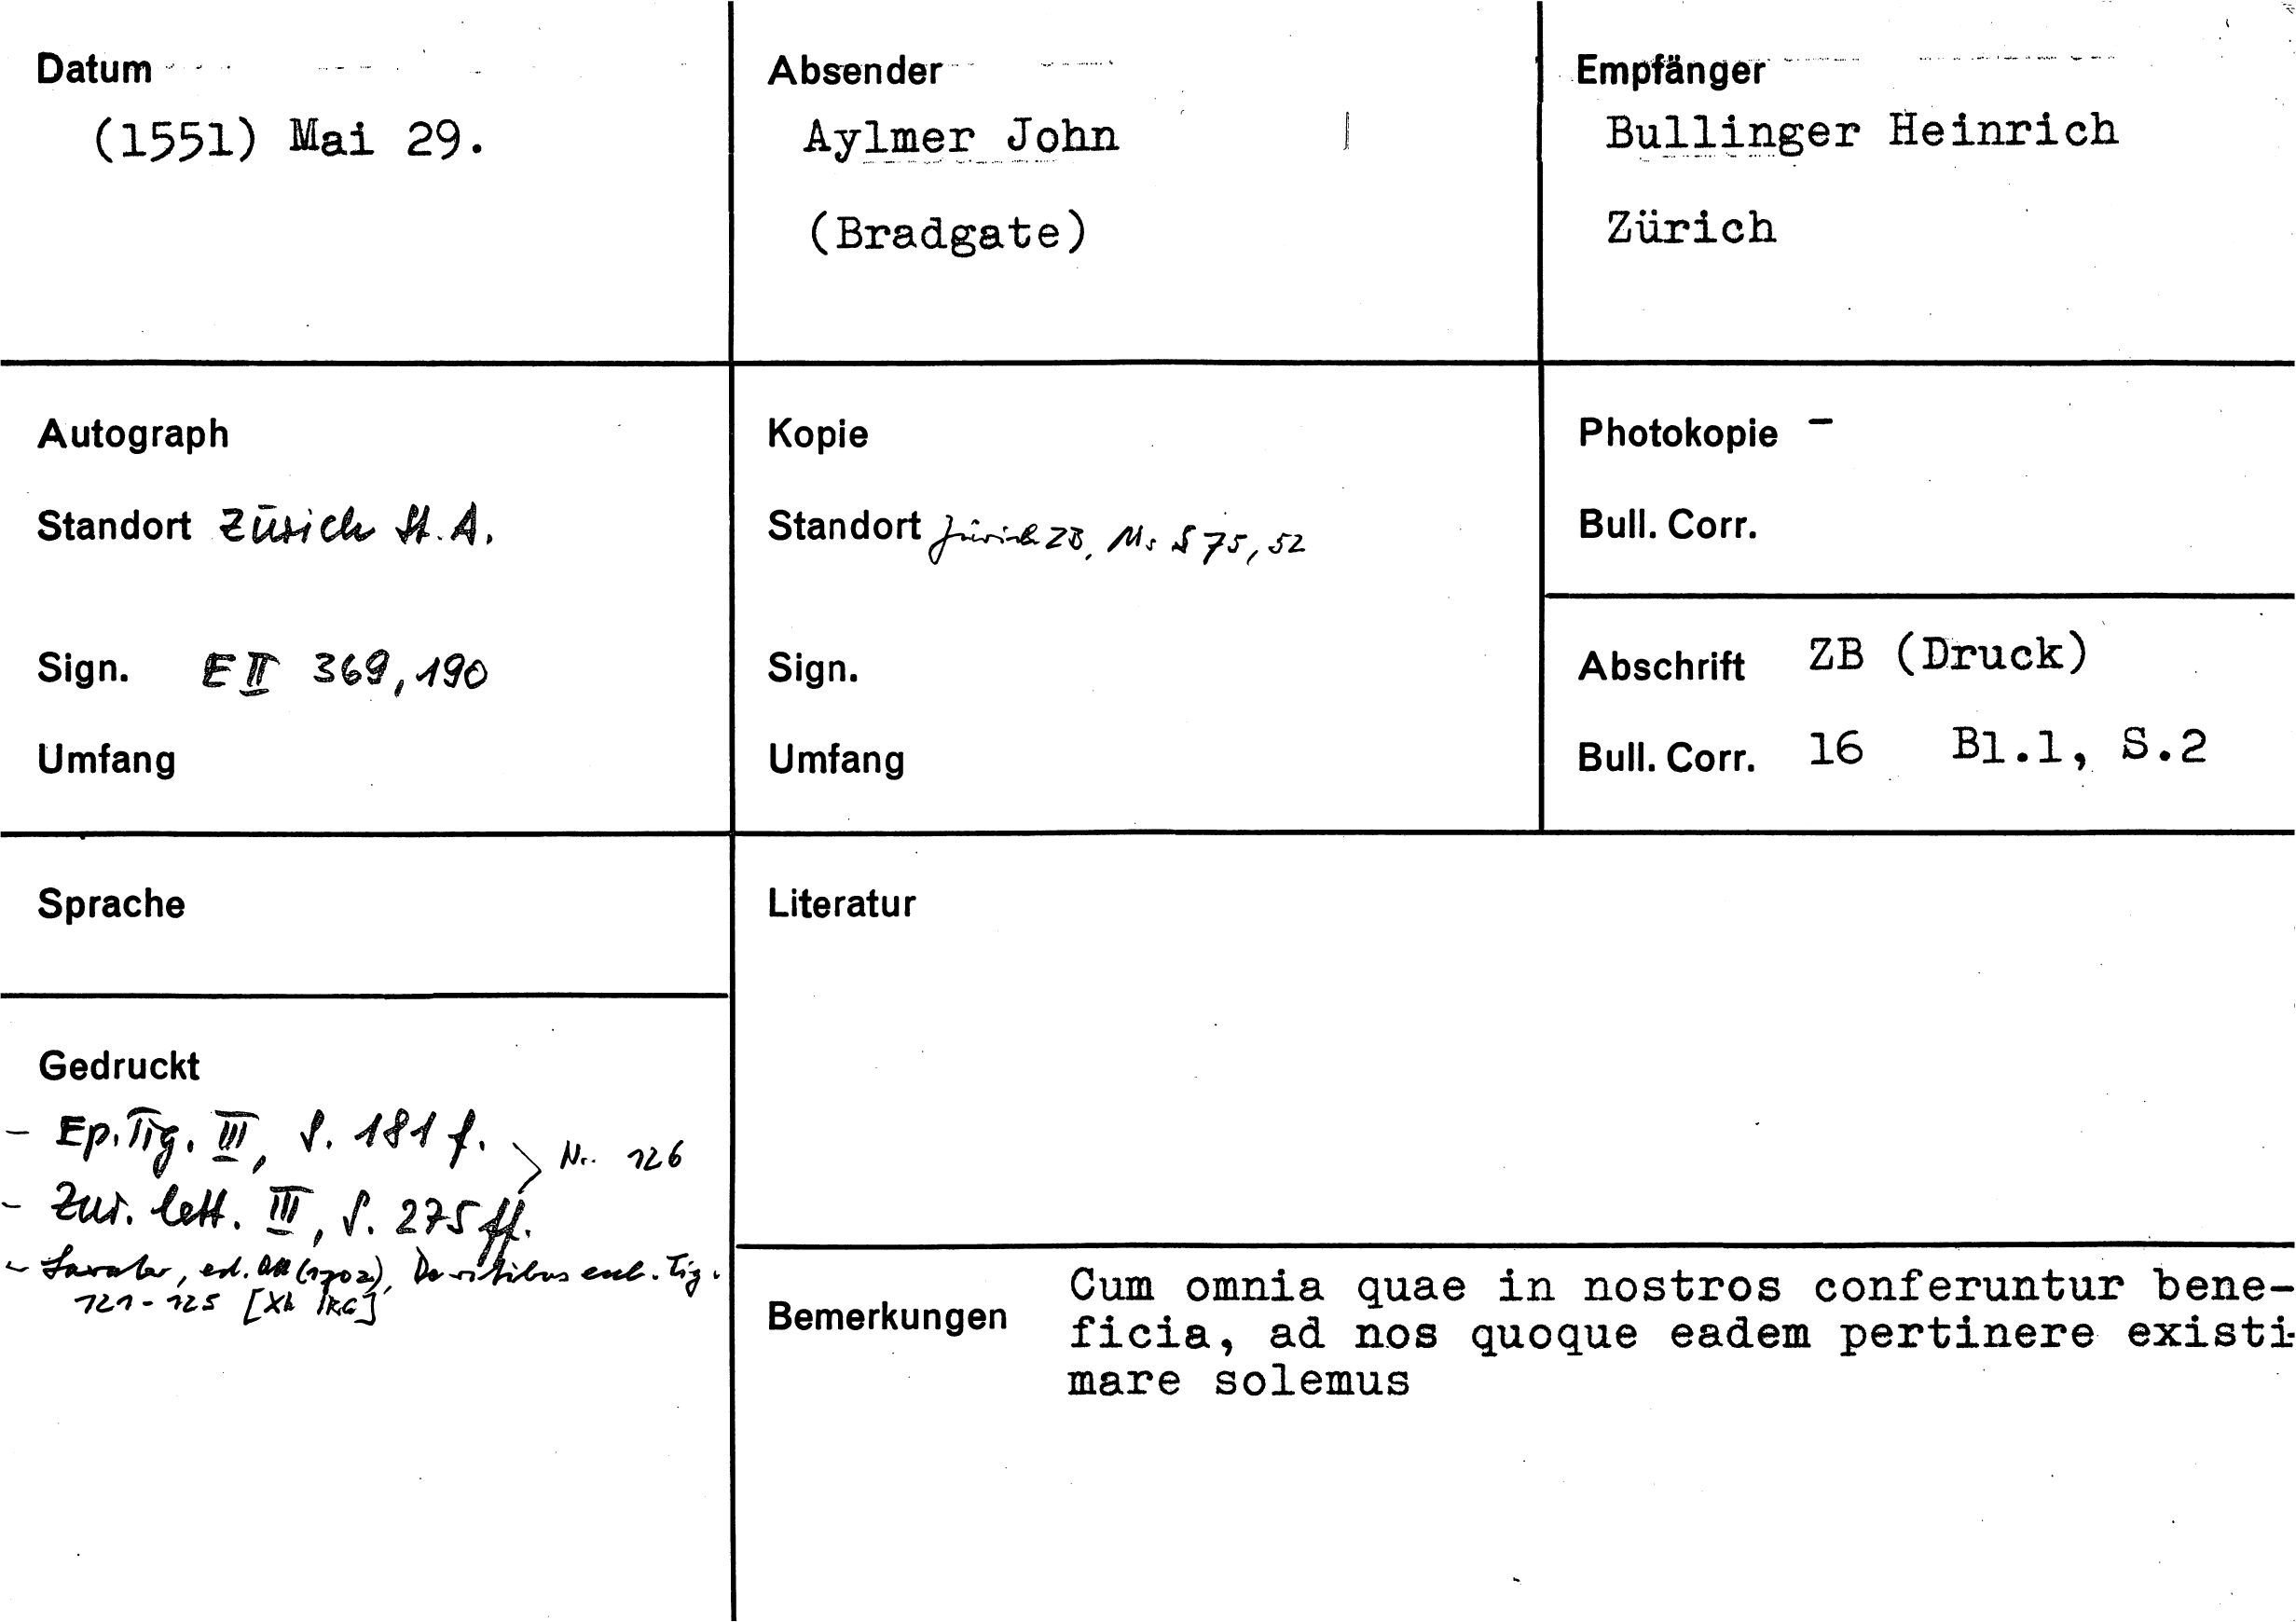 Datum
(1551) Mai 29.
Absender
Aylmer John
(Bradgate)
Empfänger
Bullinger Heinrich
Zürich
Autograph
Standort Zürich St. A.
Sign. E II 369, 190
Umfang
Kopie
Standort Zürich ZB, Ms S 75, 52
Sign.
Umfang
Photokopie -
Bull. Corr.
Abschrift ZB (Druck)
Bull. Corr. 16 Bl.1, S.2
Sprache
Literatur
Gedruckt
- Ep. Tig. III, S. 181 f.
Nr. 126
- Zur. lett. III, S. 275 ff.
- Lavater, ed. Ott (1702), De ritibus eccl. Tig.
121-125
Bemerkungen
Cum omnia quae in nostros conferuntur bene-
ficia, ad nos quoque eadem pertinere existi-
mare solemus